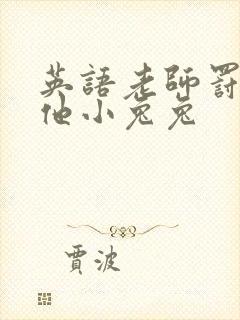 英語老師罰
他小兔兔
賈波